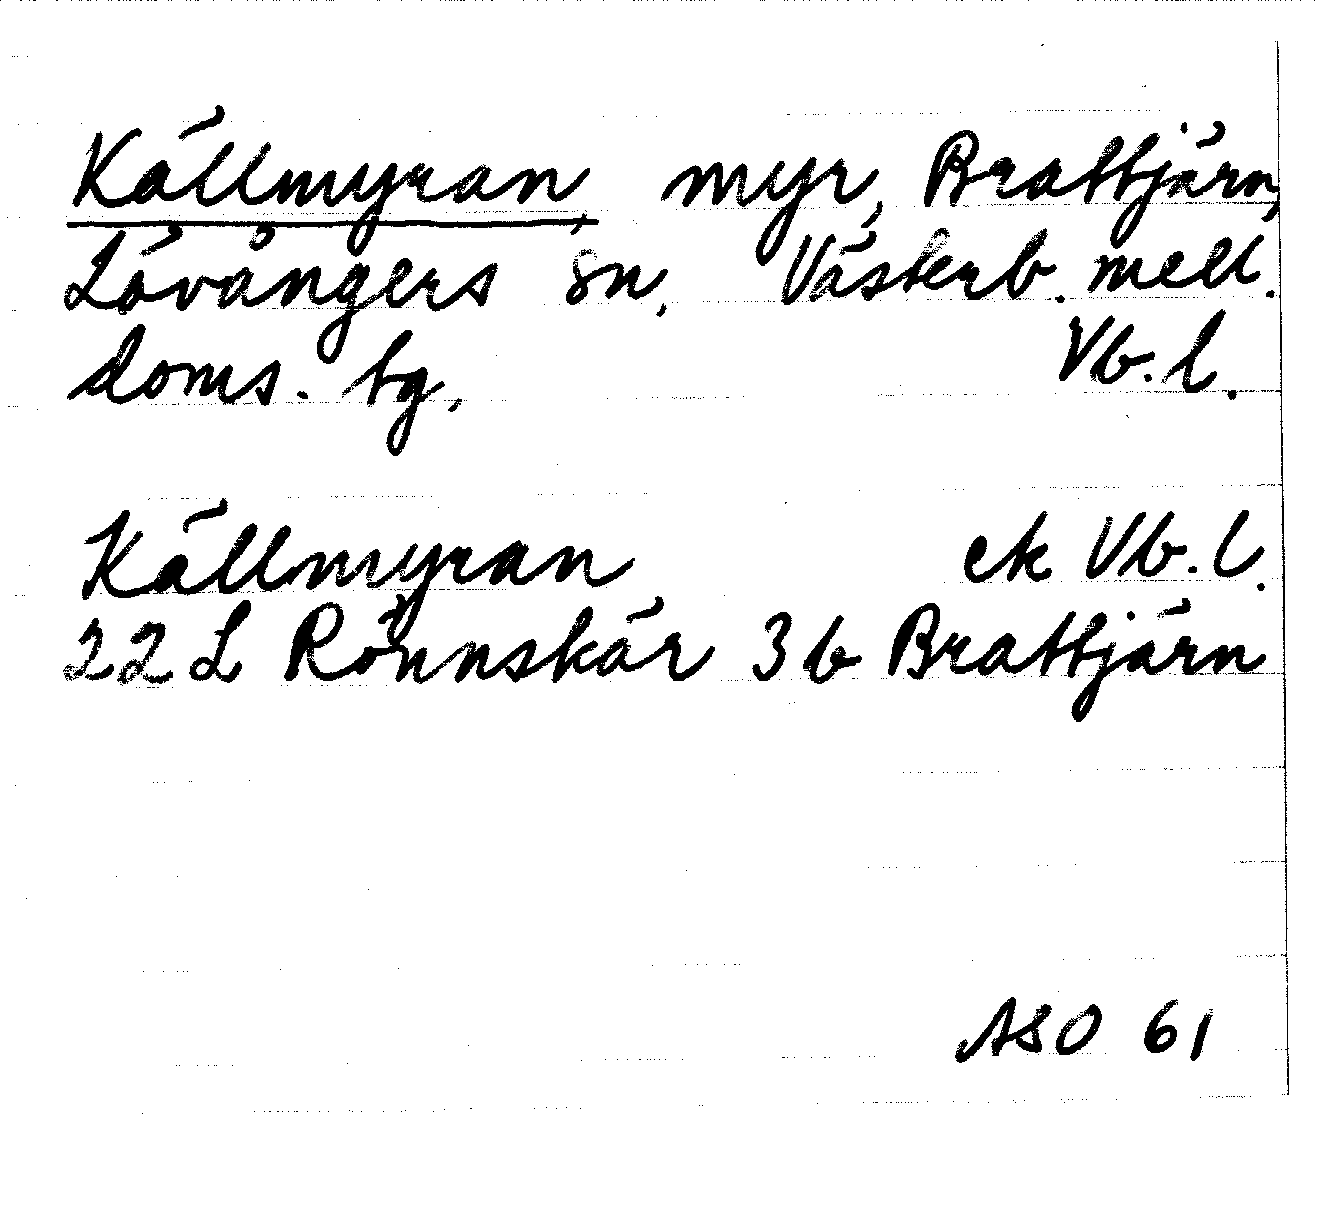 Källmyran, myr, Brattjärn,
Lövångers sn, Västerb. mell.
doms. bg, Vb. l.
Källmyran ek Vb. l.
22 L Rönnskär 3 b Brattjärn
ASO 61